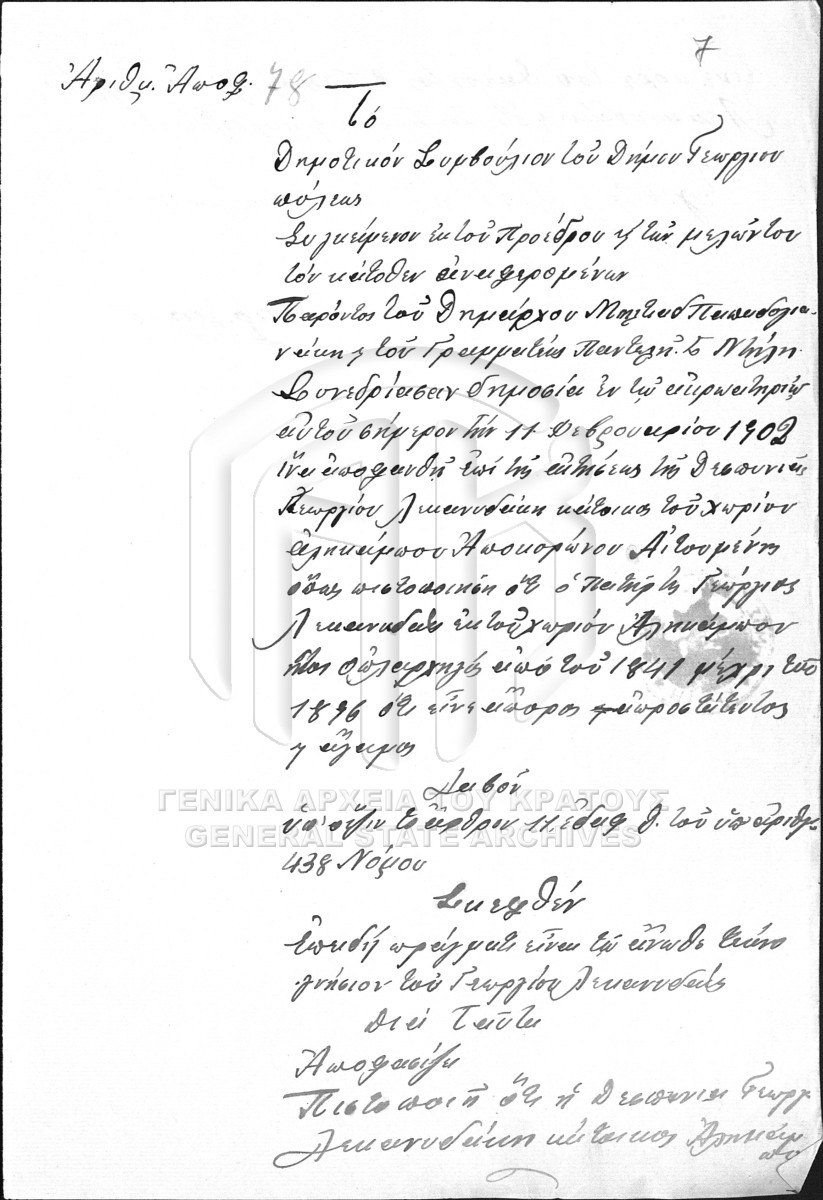 7
Ἀριθμ. Ἀποφ. 78
Τό
Δημοτικόν Συμβούλιον τοῦ Δήμου Γεωργιου
πόλεως
Συγκείμενον ἐκ τοῦ Προέδρου κ τῶν μελῶν του
τῶν κάτοθεν ἀναφερομένων
Παρόντος τοῦ Δημάρχου Μηλτιαδ Παπαδογια-
νάκη κ τοῦ Γραμματέως Παντελῆ
Συνεδρίασαν δημοσία ἐν τῷ
αὐτοῦ σήμερον τήν 11 Φεβρουαρίου 1902
ἵνα ἀποφανθῆ ἐπί τῆς αἰτήσεως τῆς Δεσπυνιας
Γεωργίου Λεκανυδάκη κάτοικος τοῦ χωρίου
Ἀληκάμπου Ἀποκορώνου Αἰτουμένης
ὅπως πιστοποιηση ὅτι ὁ πατήρ της Γεώργιος
Λεκανυδάκης ἐκ τοῦ χωριοῦ Ἀληκάμπου
ἦτον ὁπλαρχηγός ἀπό τοῦ 1841 μέχρι τοῦ
1896 ὅτι εἶνε ἄπορος ἀπροστάτευτος
κ ἄγαμος
Λαβόν
ὑπ' ὄψιν το ἄρθρον 11 ἐδαφ. θ. τοῦ ὑπ ἀριθμ.
438 Νόμου
Σκεφθέν
Ἐπειδή πράγματι εἶναι τῷ ἄνωθε τέκνο
γνήσιον τοῦ Γεωργίου Λεκανυδάκις
Διά Ταῦτα
Ἀποφασίζει
Πιστοποιῆ ὅτι ἡ Δεσπυνια Γεωργ
Λεκανυδάκη κάτοικος Ἀληκάμ
που
ΓΕΝΙΚΑ ΑΡΧΕΙΑ ΤΟΥ ΚΡΑΤΟΥΣ
GENERAL STATE ARCHIVES